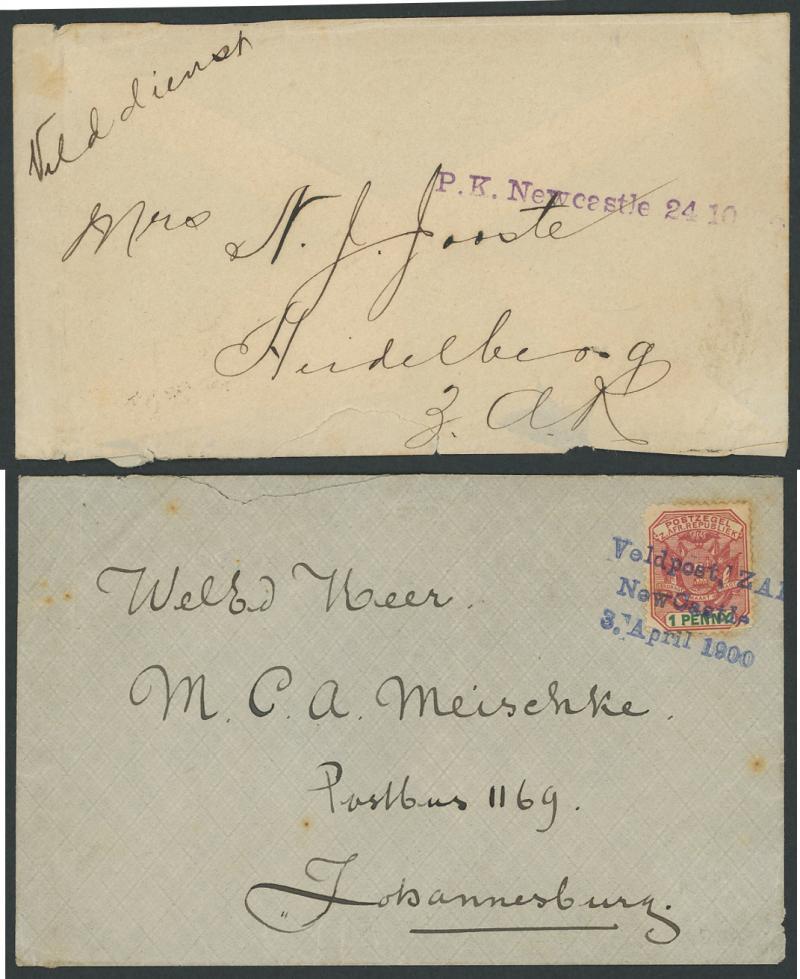 Velddienst
P.K. Newcastle 24 10
Mrs N. J. Jooste
Heidelberg
Z. A. R
POSTZEGEL
Z. AFR. REPUBLIEK
1 PENNY
Veldpost, ZAR
NewCastle
3. April 1900
WelEd Heer.
M. C. A. Meischke.
Postbus 1169.
Johannesburg.